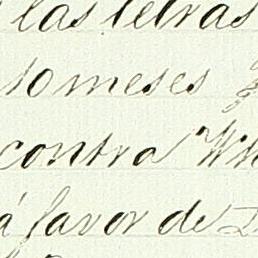 las letras
10 meses
contra
á favor de